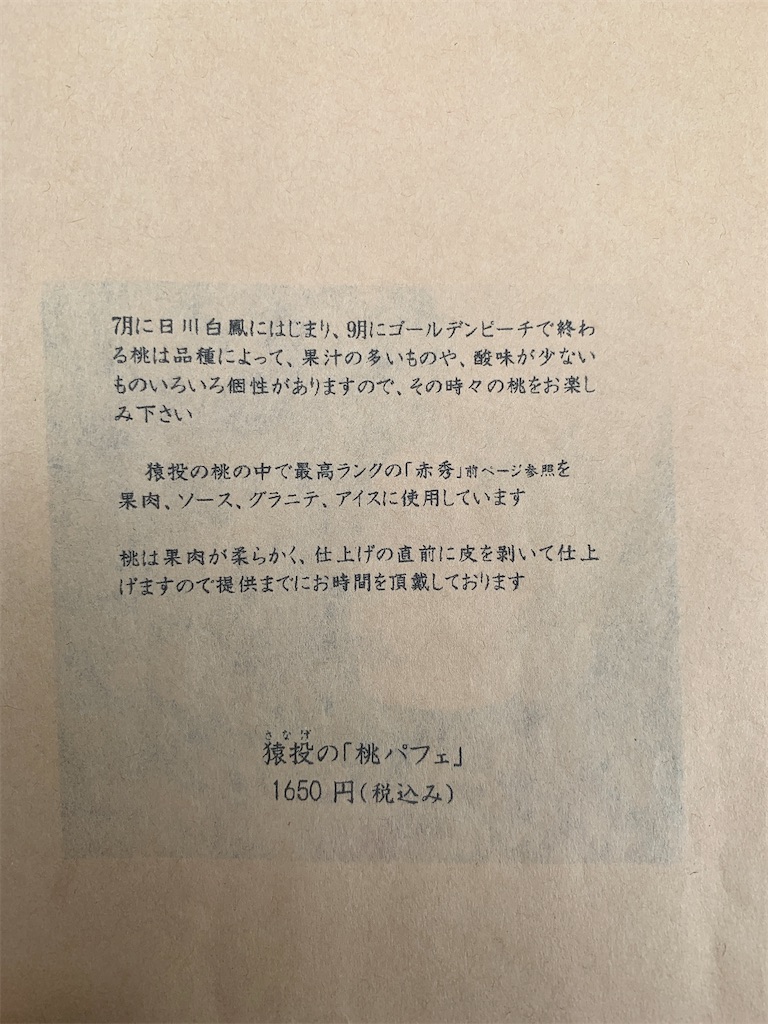 7月に日川白鳳にはじまり、9月にゴールデンピーチで終わ
る桃は品種によって、果汁の多いものや、酸味が少ない
ものいろいろ個性がありますので、その時々の桃をお楽し
み下さい
猿投の桃の中で最高ランクの「赤秀」前ページ参照を
果肉、ソース、グラニテ、アイスに使用しています
桃は果肉が柔らかく、仕上げの直前に皮を剥いて仕上
げますので提供までにお時間を頂戴しております
さなげ
猿投の「桃パフェ」
1650円(税込み)